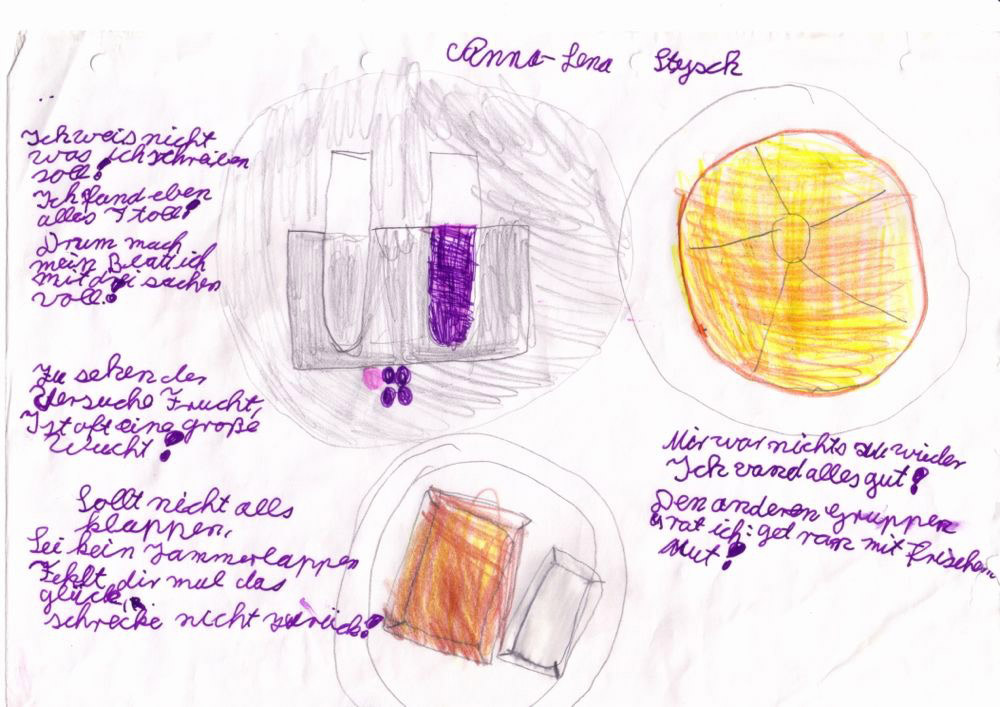 Anna-Lena Stysch
Ich weis nicht
was ich schreiben
soll!
Ich fand eben
alles toll!
Drum mach
mein Blatt ich
mit drei sachen
voll!
Zu sehen der
Versuche Frucht,
Ist oft eine große
Wucht!
Sollt nicht alls
klappen,
Sei kein Jammerlappen
Fehlt dir mal das
glück,
schrecke nicht zurück!
Mir war nichts zu wieder
Ich vand alles gut!
Den anderen Gruppen
rat ich: get ran mit frischem
Mut!